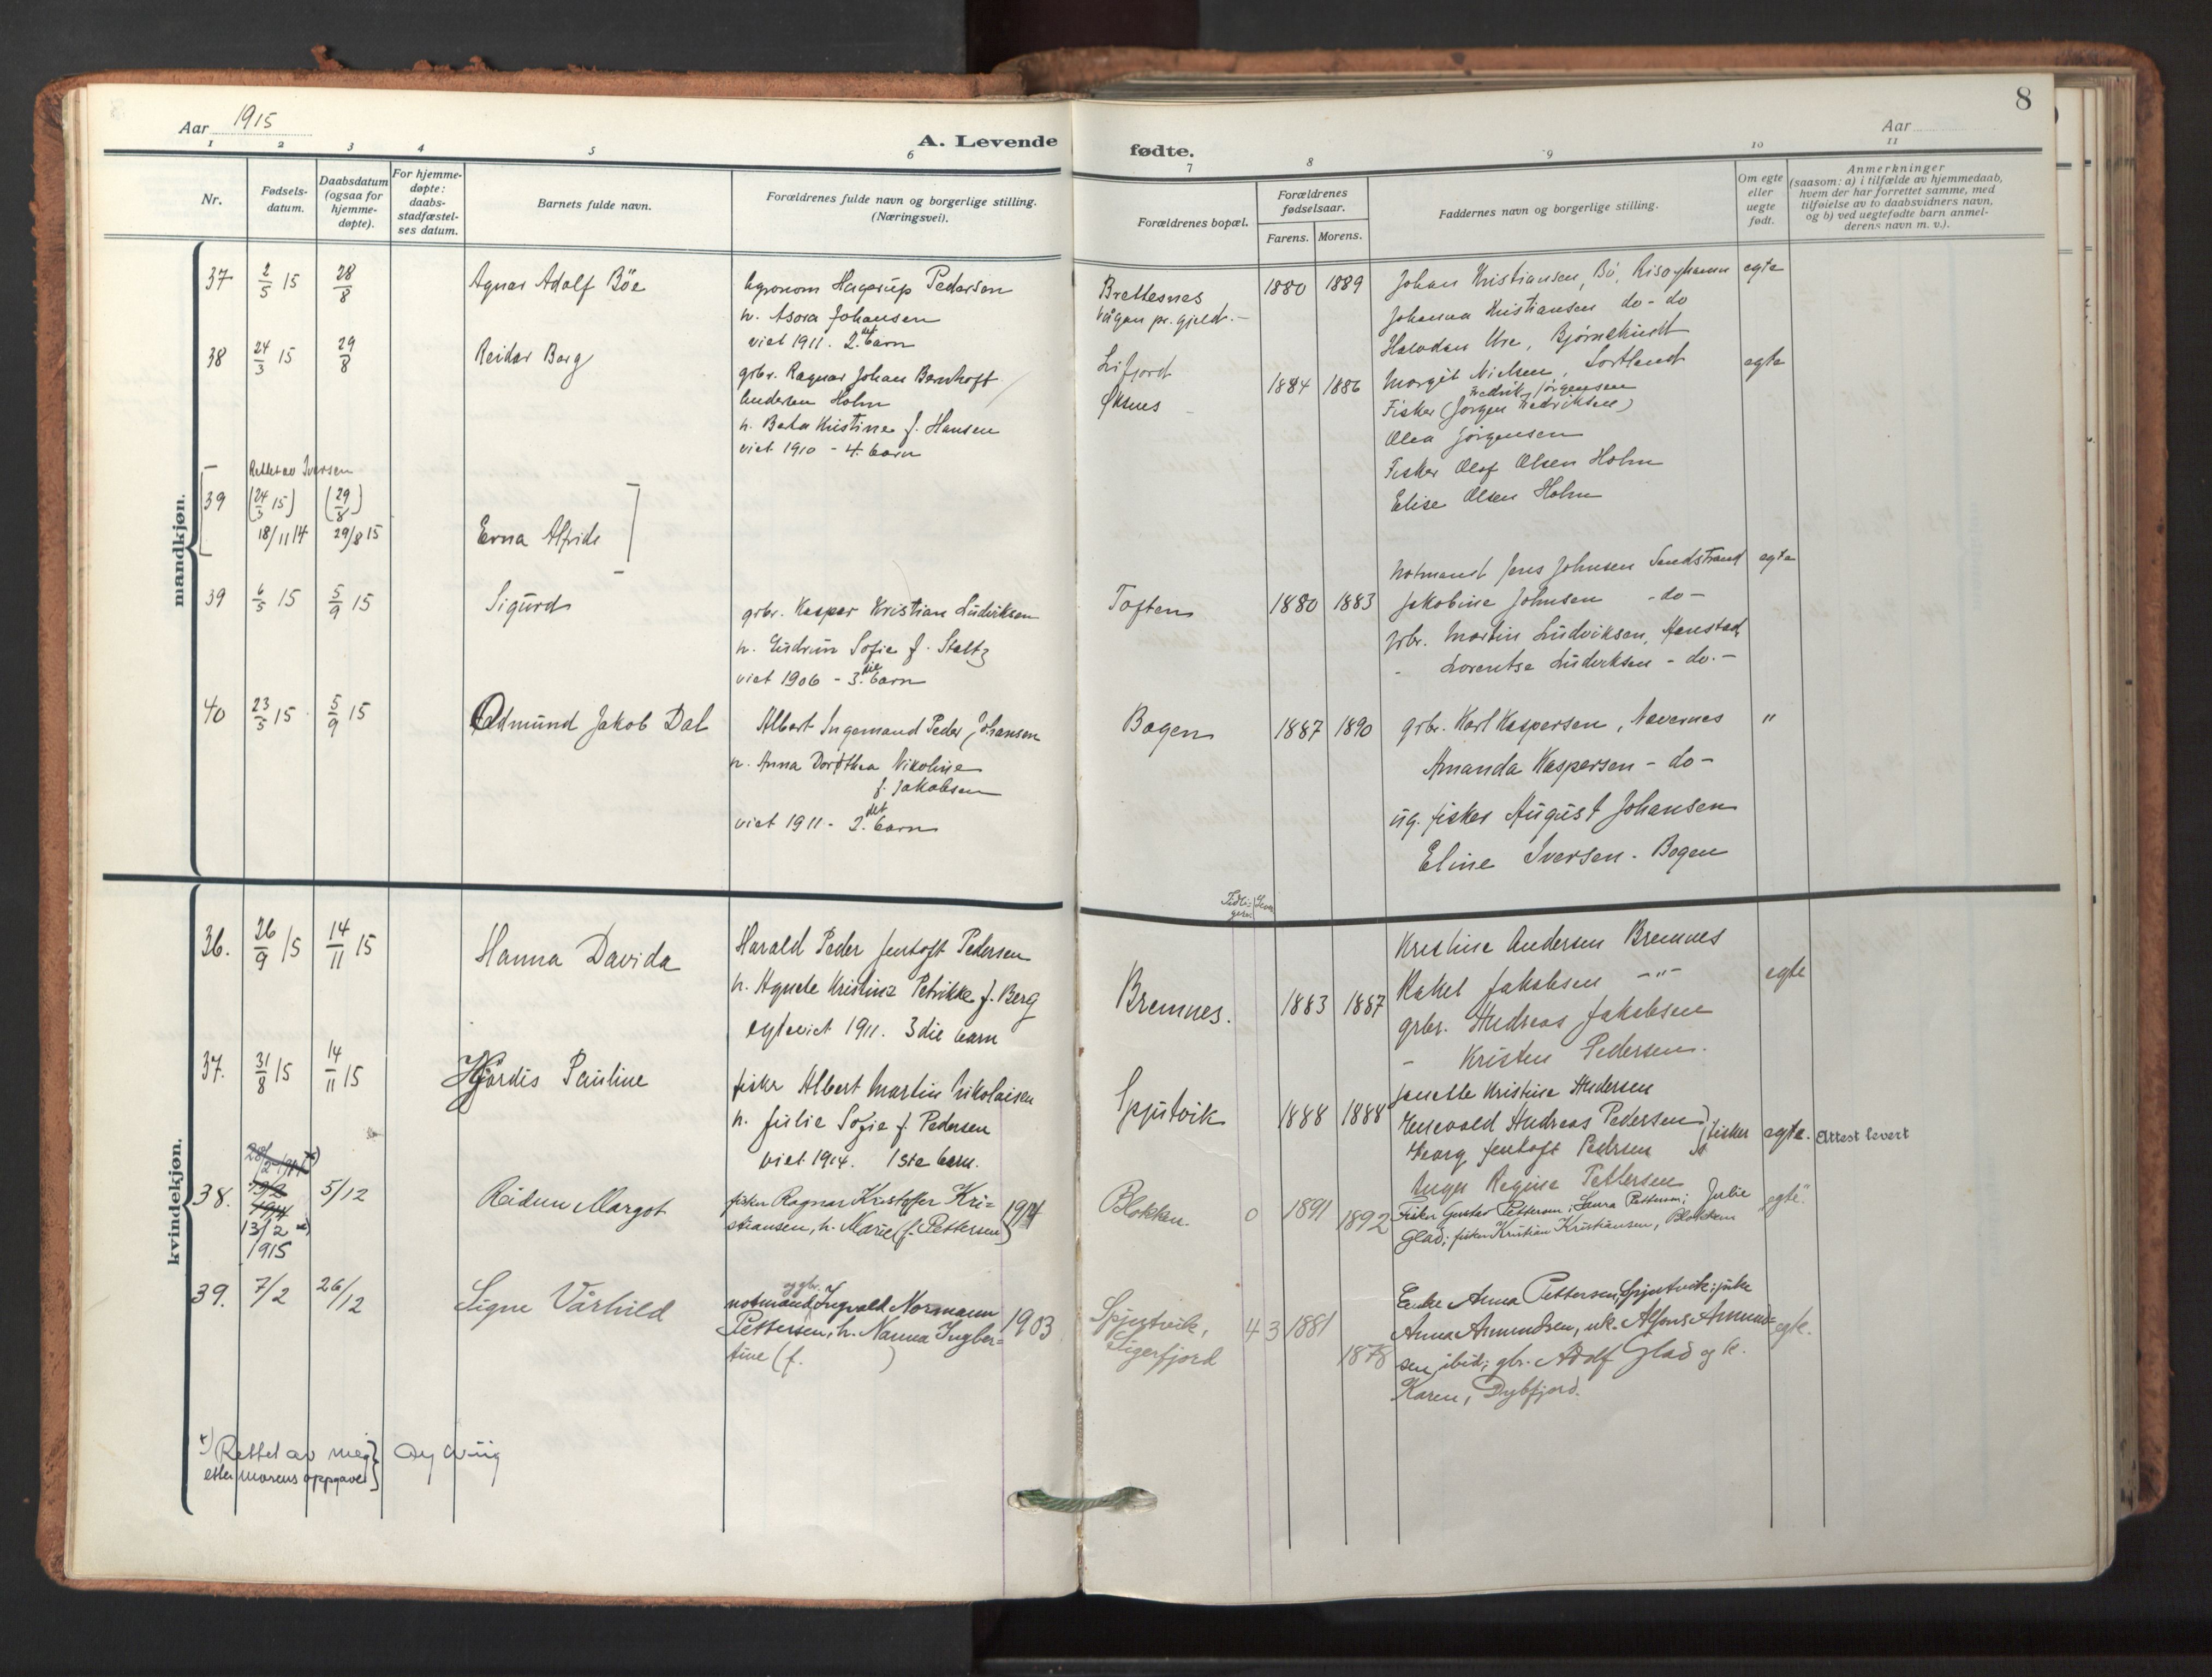 8
Aar 1915
A. Levende
fødte.
Aar
1 2 3 4 5 6 7 8 9 10 11
Nr.
Fødsels-
datum.
Daabsdatum
(ogsaa for
hjemme-
døpte).
For hjemme-
døpte:
daabs-
stadfæstel-
ses datum.
Barnets fulde navn.
Forældrenes fulde navn og borgerlige stilling.
(Næringsvei).
Forældrenes bopæl.
Forældrenes
fødselsaar.
Farens. Morens.
Faddernes navn og borgerlige stilling.
Om egte
eller
uegte
født.
Anmerkninger
(saasom: a) i tilfælde av hjemmedaab,
hvem der har forrettet samme, med
tilføielse av to daabsvidners navn,
og b) ved uegtefødte barn anmel-
derens navn m. v.).
mandkjøn.
37 2/5 15 28/8 Agnar Adolf Böe
Agronom Hagerup Pedersen
h. Asora Johansen
viet 1911. 2.det barn
Brettesnes
Vågan pr.gjeld.-
1880 1889
Johan Kristiansen, Bö, Risøyhamn
Johanna Kristiansen do-do
Halvdan Ure, Bjørnskindt
Margit Nielsen, Sortland
egte
38 24/3 15 29/8 Reidar Berg
grbr. Ragnar Johan Bernhoft
Andersen Holm
h. Berta Kristine f. Hansen
viet 1910 - 4. barn
Lifjord
Øksnes
1884 1886
Fredrik Jørgensen
Fisker (Jørgen Fredriksen)
Olea Jörgensen
Fisker Olaf Olsen Holm
Elise Olsen Holm
egte
Rettet av Iversen
39 (24/3 15) (29/8)
18/11 14 29/8 15
Erna Alfride
39 6/5 15 5/9 15 Sigurd
grbr. Kasper Kristian Ludviksen
h. Gudrun Sofie f. Stoltz
viet 1906 - 3.die barn
Toften
1880 1883
Notmand Jens Johnsen Sandstrand
Jakobine Johnsen -do-
grbr. Martin Ludviksen, Hanstad,
- Lorentse Ludviksen - do.-
egte
40 23/5 15 5/9 15 Odmund Jakob Dal
Albert Ingemand Peder Johansen
h. Anna Dorothea Nikoline
f. Jakobsen
viet 1911 - 2.det barn
Bogen
1887 1890
grbr. Karl Kaspersen, Nevernes
Amanda Kaspersen - do-
ug. fisker August Johansen
Eline Iversen. Bogen
"
kvindekjøn.
36. 26/9 15 14/11 15 Hanna Davida
Harald Peder Jentoft Pedersen
h. Agnete Kristine Petrikke f. Berg
egteviet 1911. 3die barn
Bremnes.
1883 1887
Kristine Andersen Bremnes
Rakel Jakobsen -"-
grbr. Andreas Jakobsen
- Kristen Pedersen.
egte
37. 31/8 15 14/11 15 Hjördis Pauline
fisker Albert Martin Nikolaisen
h. Julie Sofie f. Pedersen
viet 1914. 1ste barn.
Spjutvik
1888 1888
Janette Kristine Andersen
Andreas Pedersen
Georg Jentoft Pedersen } fisker
Inga Regine Pettersen
egte.
Attest levert
38. 28/2 1914 *)
13/2
1914
13/2 *)
1915
5/12
Reidun Margot
fisker Ragnar Kristoffer Kri-
stiansen, h. Marie (f. Pettersen)
1914
Blokken.
0 1891 1892
Fisker Gustav Pettersen; Laura Pettersen; Julie
Glad; fisker Kristian Kristiansen, Blokken
"egte."
39. 7/2 26/12 Signe Vårhild
og gbr.
notmand, Ingvald Normann
Pettersen, h. Nanna Ingber-
tine (f. )
1903
Spjutvik,
Sigerfjord
4 3 1881 1878
Enke Anna Pettersen, Spjutvik; pike
Anna Amundsen, uk. Alfons Amund-
sen ibid; gbr. Adolf Glad og h.
Karen, Dybfjord.
egte.
*) Rettet av meg }
etter morens oppgave }